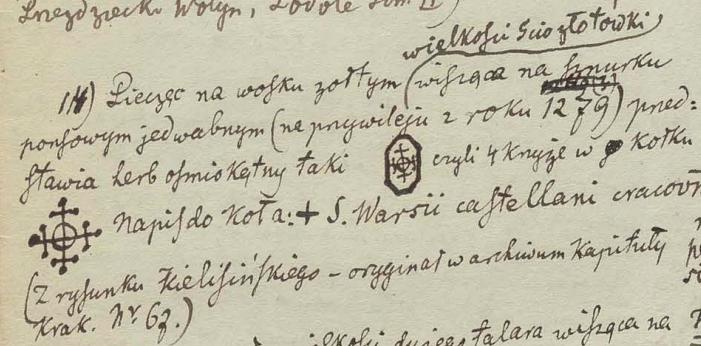 Przezdziecki Wołyń, Podole Tom II)
wielkości 5cio złotówki
14) Pieczęć na wosku żółtym (wisząca na sznurku
ponsowym jedwabnym (na przywileju z roku 1279) przed=
stawia herb ośmiokątny taki czyli 4 krzyże w kołku
Napis do koła: + S. Warsii castellani cracovi
(Z rysunku Kielisińskiego – oryginał w archiwum Kapituły
Krak. Nr 67.)
wielkości dużego talara wisząca na